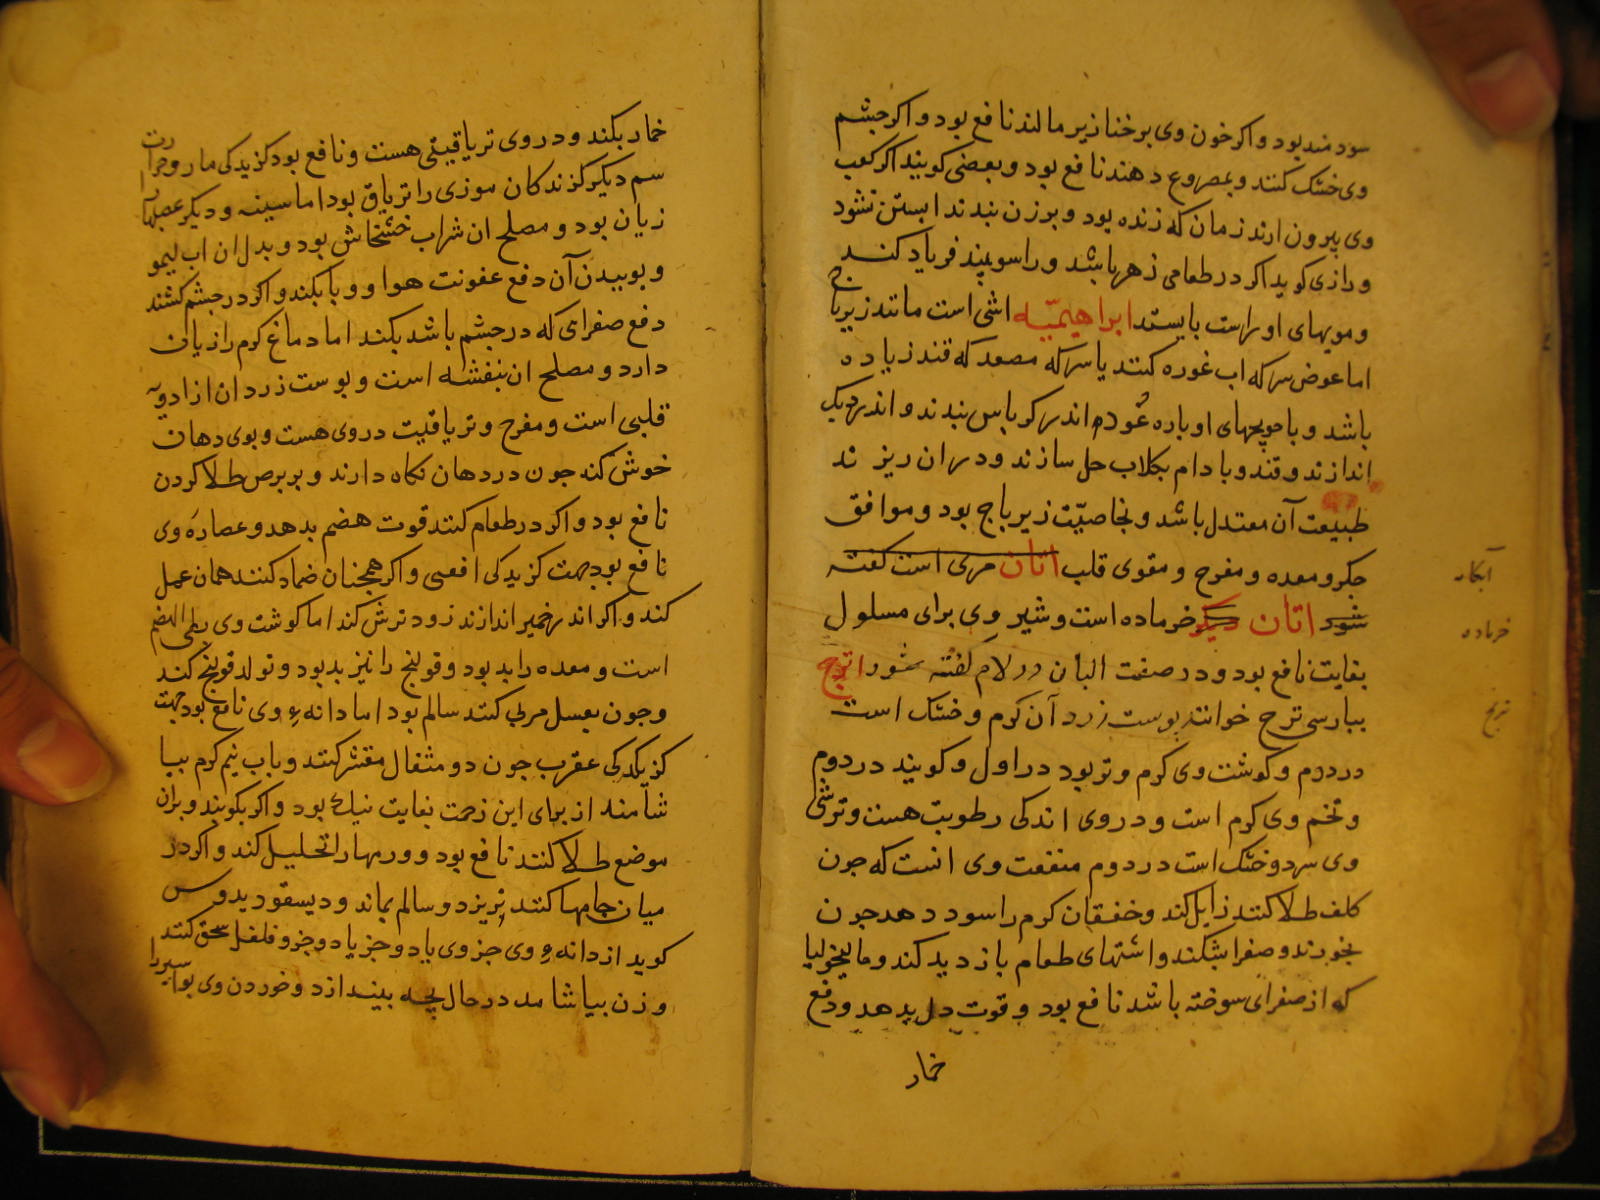 سود مند بود و اکر خون وی بر خنازیر مالند نافع بود و اکر جشم
وی خشک کنند و بمصروع دهند نافع بود و بعضی کویند اکر کعب
وی بیرون ارند زمان که زنده بود و بر زن بندند ابستن نشود
و رازی کوید اکر در طعامی زهر باشد و راسو بیند فریاد کند
و مویهای او راست بایستد ابراهیمیّه اشی است مانند زیرباج
اما عوض سرکه اب غوره کنند یا سرکه مصعد که قند زیاده
باشد و با حویجهای او باره عود اندر کرباس بندند و اندر دیک
اندازند و قند و بادام بکلاب حل سازند و دران ریزند
طبیعت آن معتدل باشد و بخاصیّت زیرباج بود و موافق
جکر و معده و مفرح و مقوی قلب اتان مری است کفته
شود اتان دیکر خر ماده است و شیر وی برای مسلول
بغایت نافع بود و در صفت البان در لام کفته شود اترج
ببارسی ترج خوانند بوست زرد آن کرم و خشک است
در دوم و کوشت وی کرم و تر بود در اول و کویند در دوم
و تخم وی کرم است و در وی اندکی رطوبت هست و ترشی
وی سرد و خشک است در دوم منفعت وی انست که جون
کلف طلا کنند زایل کند و خفقان کرم را سود دهد جون
بخورند و صفرا بشکند و اشتهای طعام باز دید کند و مالیخولیا
که از صفرای سوخته باشد نافع بود و قوت دل بدهد و دفع
خمار
آبکامه
خرماده
ترنج
خمار بکند و در وی تریاقیتی هست و نافع بود کزیدکی مار و حرارت
سم دیکر کزندکان موزی را تریاق بود اما سینه و دیکر عصبها را
زیان بود و مصلح ان شراب خشخاش بود و بدل ان اب لیمو
و بوییدن آن دفع عفونت هوا و وبا بکند و اکر در جشم کشند
دفع صفرای که در جشم باشد بکند اما دماغ کرم را زیان
دارد و مصلح ان بنفشه است و بوست زرد ان از ادویه
قلبی است و مفرح و تریاقیت در وی هست و بوی دهان
خوش کند جون در دهان نکاه دارند و بر برص طلا کردن
نافع بود و اکر در طعام کنند قوت هضم بدهد و عصاره وی
نافع بود جهت کزیدکی افعی و اکر همجنان ضماد کنند همان عمل
کند و اکر اندر خمیر اندازند زود ترش کند اما کوشت وی بطی الهضم
است و معده را بد بود و قولنج را نیز بد بود و تولد قولنج کند
و جون بعسل مربی کنند سالم بود اما دانه وی نافع بود جهت
کزیدکی عقرب جون دو مثقال مقشر کنند و باب نیم کرم بیا
شامند از برای این زحمت بغایت نیک بود و اکر بکوبند و بران
موضع طلا کنند نافع بود و ورمها را تحلیل کند و اکر در
میان جامها کنند نریزد و سالم بماند و دیسقوریدوس
کوید از دانه وی جزوی یا دو جز یا دو جزو فلفل سحق کنند
و زن بیاشامد در حال بچه بیندازد و خوردن وی بواسیر را